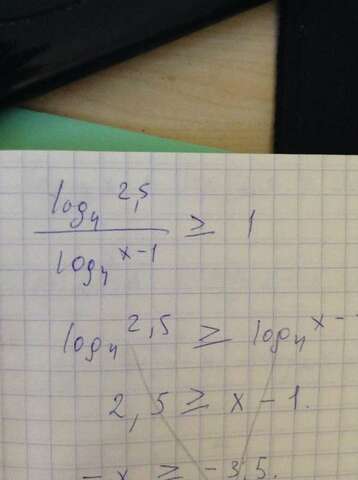 log₄ 2,5
log₄ x-1
≥ 1
log₄ 2,5 ≥ log₄ x-
2,5 ≥ x-1.
-x ≥ -3,5.